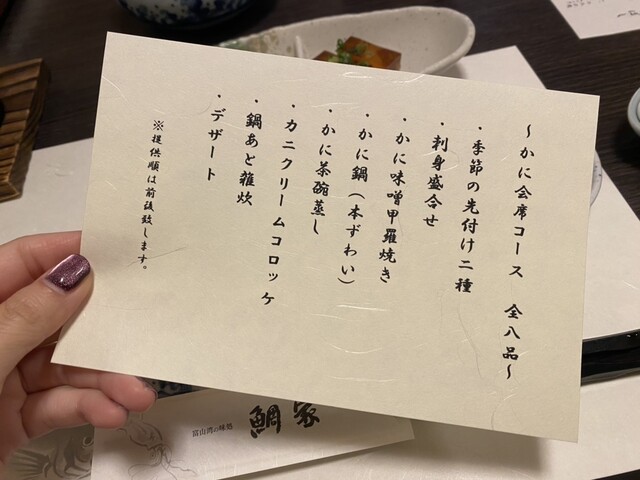 ～かに会席コース　全八品～
・季節の先付け二種
・刺身盛合せ
・かに味噌甲羅焼き
・かに鍋（本ずわい）
・かに茶碗蒸し
・カニクリームコロッケ
・鍋あと雑炊
・デザート
※提供順は前後致します。
富山湾の味処
鯛家